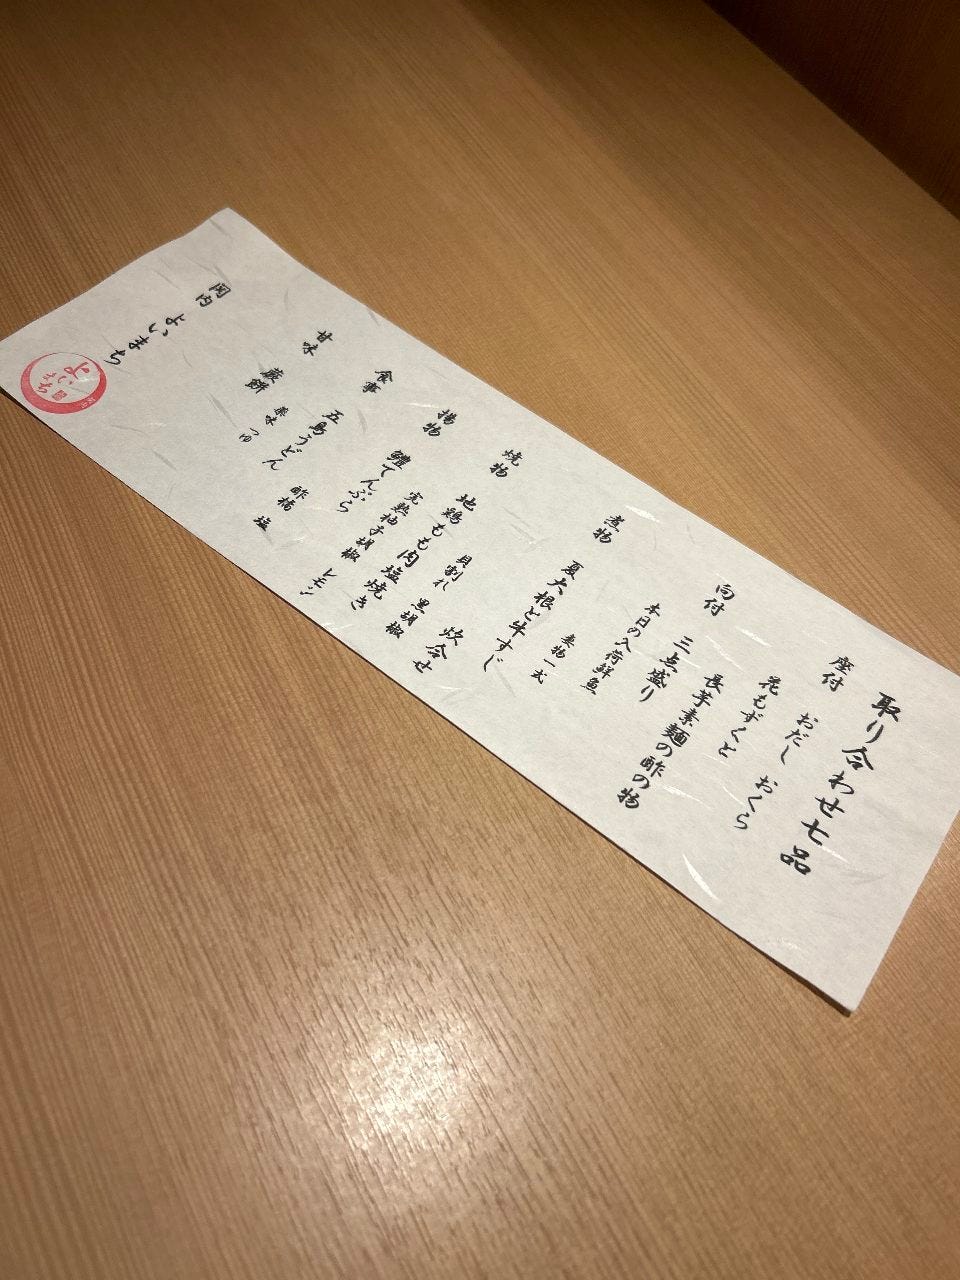 取り合わせ七品
座付 おだし おくら
花もずくと
長芋素麺の酢の物
向付 三点盛り
本日の入荷鮮魚
妻物一式
煮物 夏大根と牛すじ
炊合せ
貝割れ 黒胡椒
焼物 地鶏もも肉塩焼き
完熟柚子胡椒 レモン
揚物 鱧てんぷら
酢橘 塩
食事 五島うどん
薬味 つゆ
甘味 蕨餅
関内 よいまち
よいまち